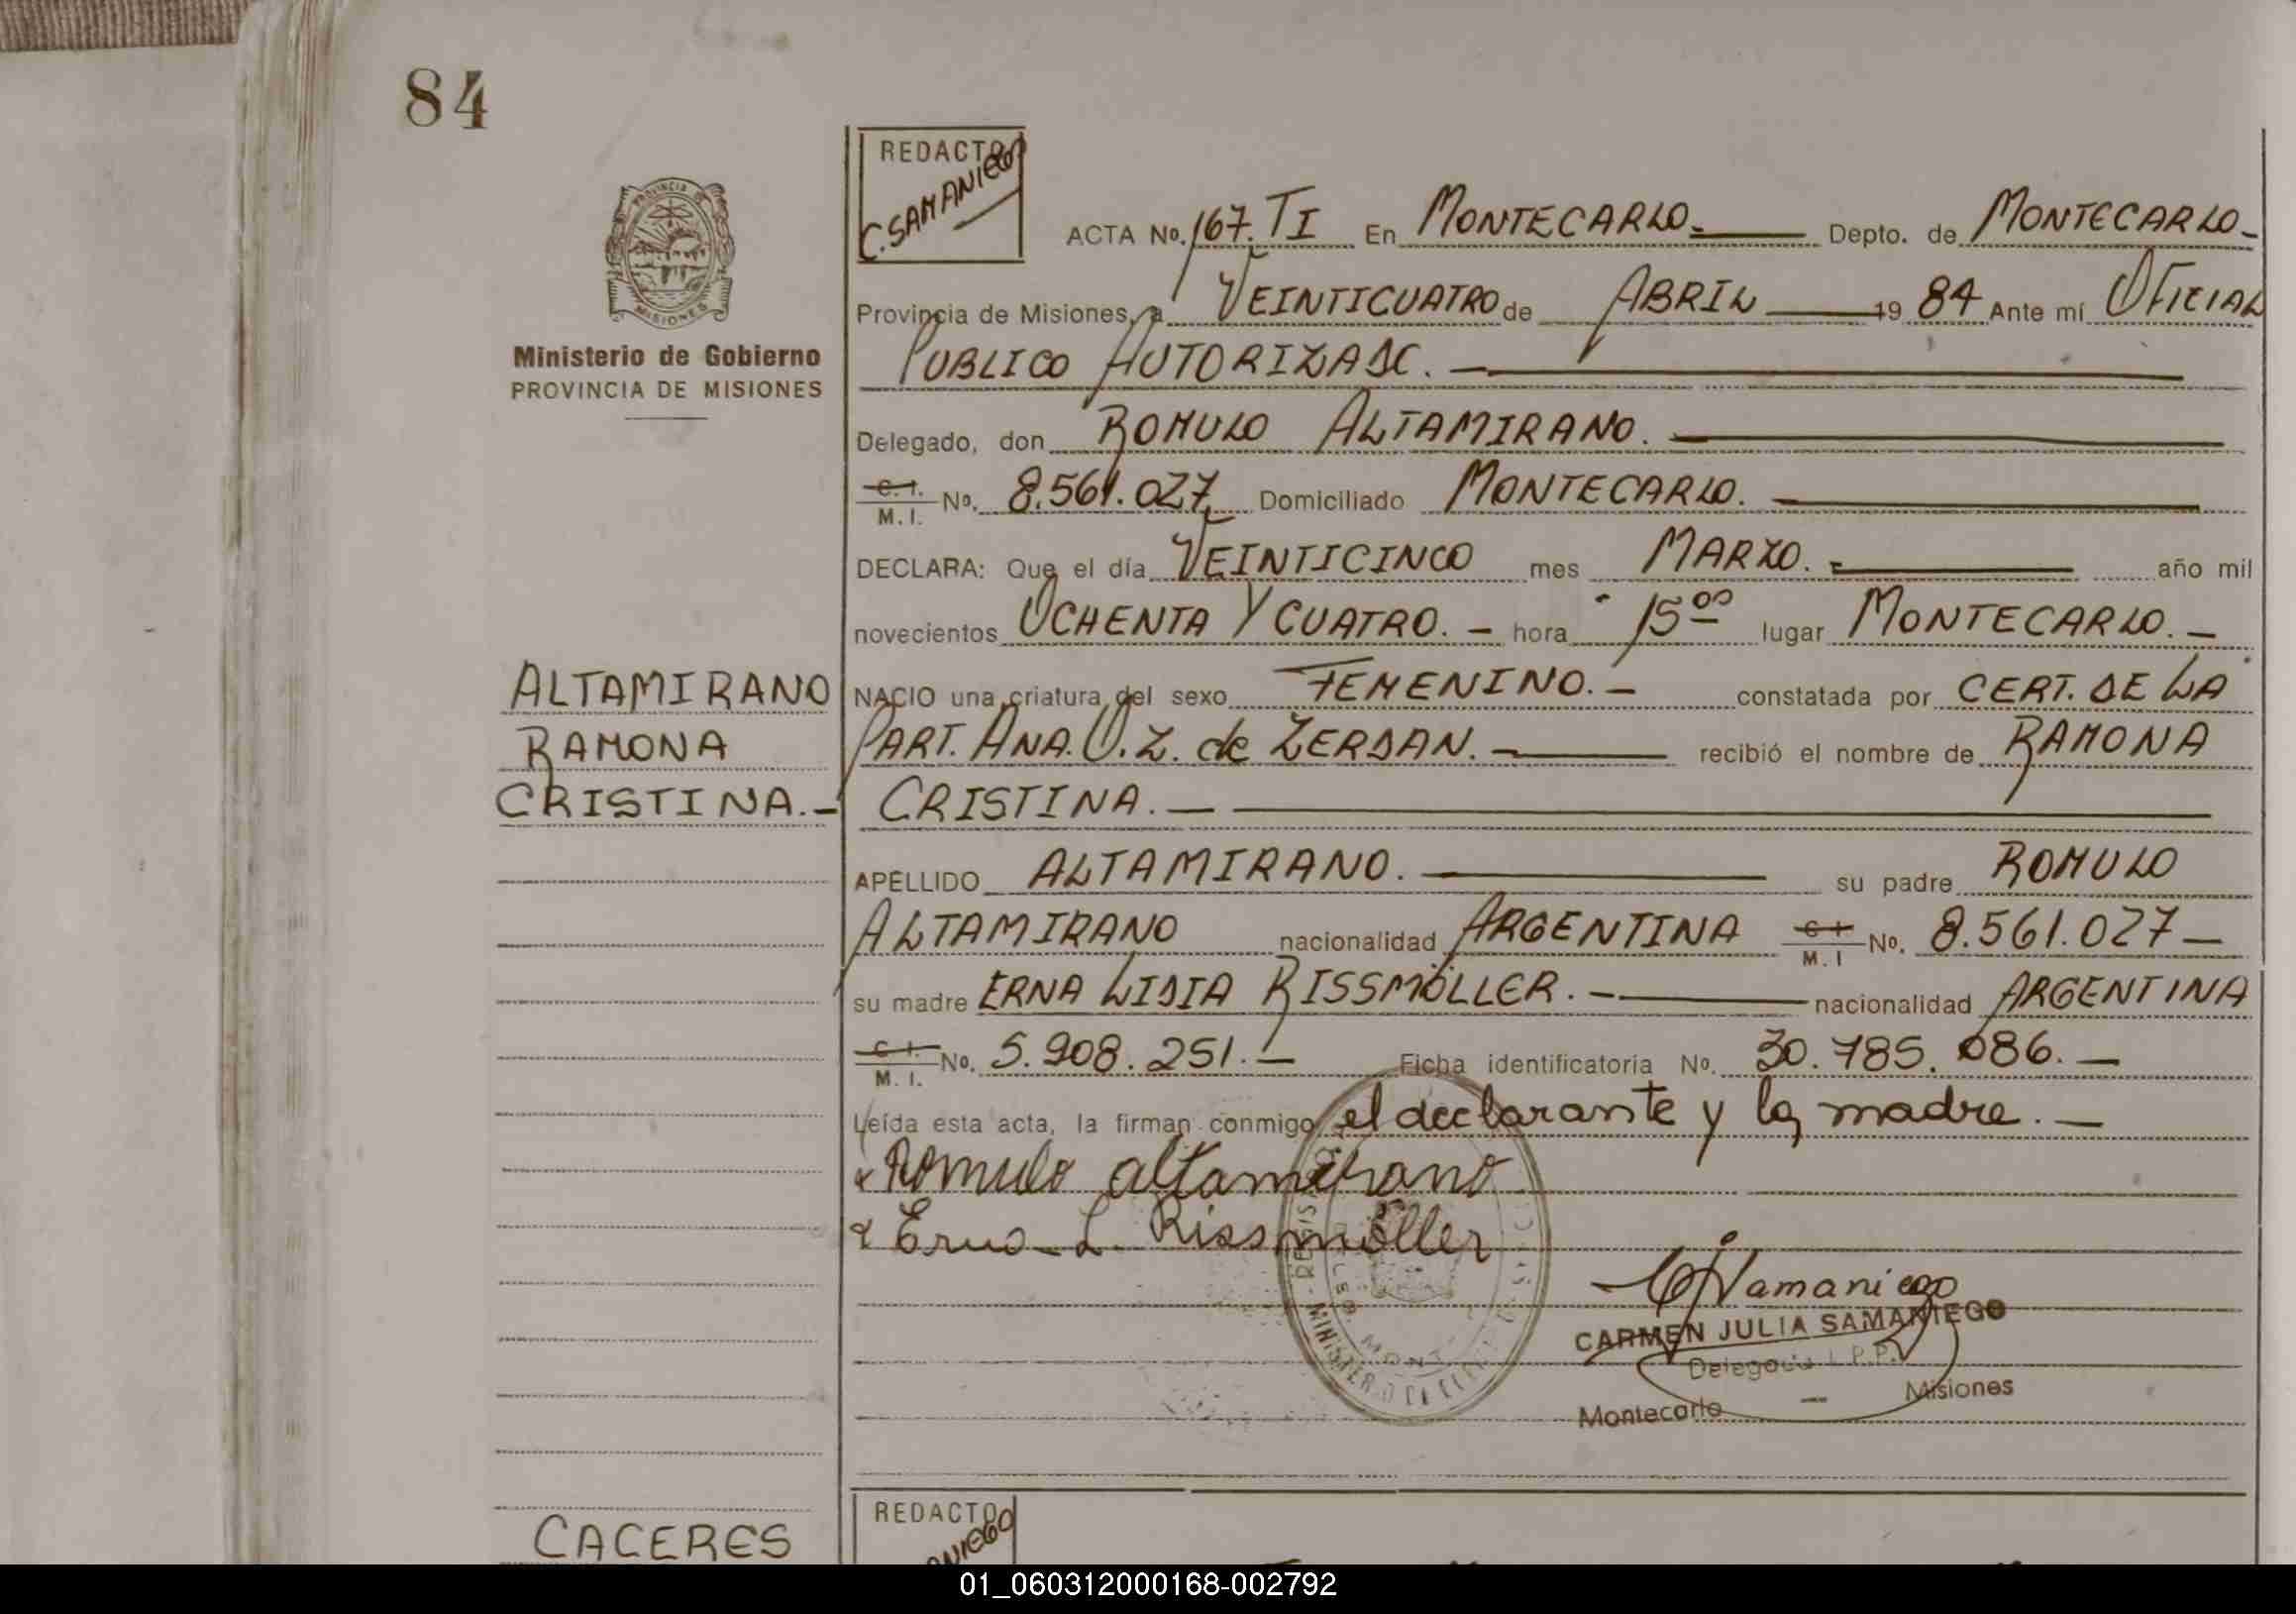 84
PROVINCIA DE
MISIONES
Ministerio de Gobierno
PROVINCIA DE MISIONES
REDACTO
C. SAMANIEGO
ACTA No. 167. TI En MONTECARLO. Depto. de MONTECARLO-
Provincia de Misiones, a VEINTICUATRO de ABRIL 1984 Ante mí OFICIAL
PUBLICO AUTORIZADO.-
Delegado, don ROMULO ALTAMIRANO.
C. I. M. I. No. 8.561.027 Domiciliado MONTECARLO.
DECLARA: Que el día VEINTICINCO mes MARZO.- año mil
novecientos OCHENTA Y CUATRO.- hora 15 00 lugar MONTECARLO.-
NACIO una criatura del sexo FEMENINO.- constatada por CERT. DE LA
PART. ANA. O. Z. de ZERDAN.- recibió el nombre de RAMONA
CRISTINA.-
APELLIDO ALTAMIRANO. su padre ROMULO
ALTAMIRANO nacionalidad ARGENTINA C I M. I No. 8.561.027-
su madre ERNA LIDIA RISSMÖLLER.- nacionalidad ARGENTINA
C I. M. I. No. 5.908.251.- Ficha identificatoria No. 30.785.086.-
Leída esta acta, la firman conmigo el declarante y la madre.-
Romulo altamirano
Erna L. Rissmöller
CJSamaniego
CARMEN JULIA SAMANIEGO
Delegada R.P.P.
Montecarlo - Misiones
ALTAMIRANO
RAMONA
CRISTINA.-
CACERES
REDACTO
01_060312000168-002792